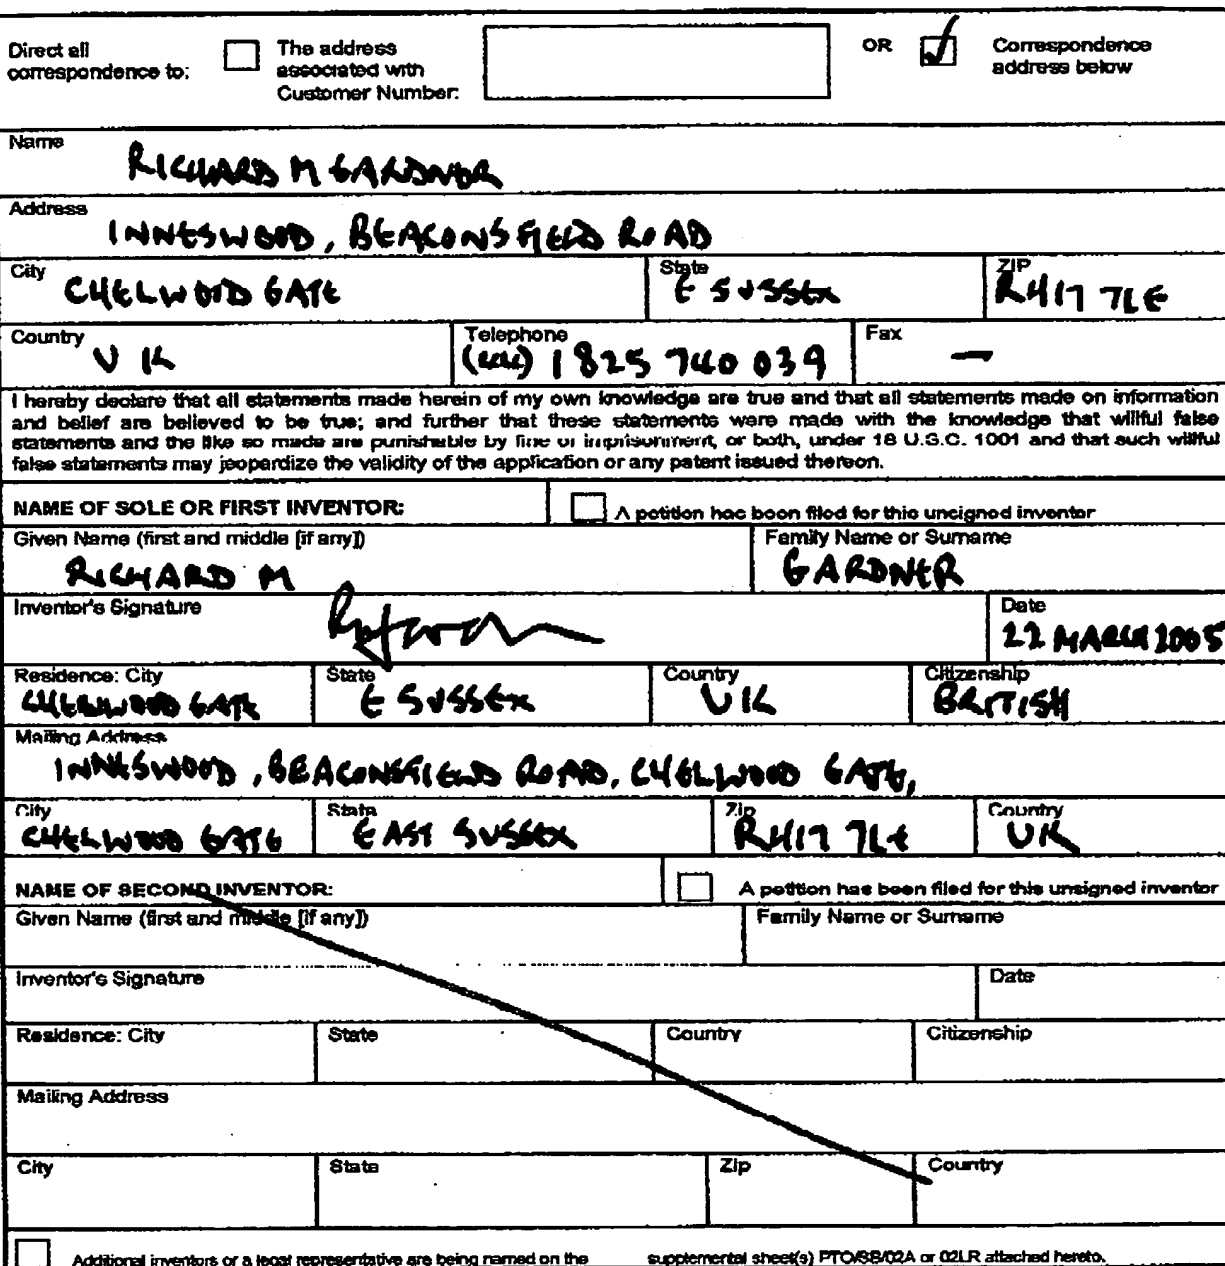 Direct all correspondence to:
The address associated with Customer Number:
OR
Correspondence address below
Name
RICHARD M GARDNER
Address
INNESWOOD, BEACONSFIELD ROAD
City
CHELWOOD GATE
State
E SUSSEX
ZIP
RH17 7LE
Country
UK
Telephone
(44) 1825 740 039
Fax
—
I hereby declare that all statements made herein of my own knowledge are true and that all statements made on information
and belief are believed to be true; and further that these statements were made with the knowledge that willful false
statements and the like so made are punishable by fine or imprisonment, or both, under 18 U.S.C. 1001 and that such willful
false statements may jeopardize the validity of the application or any patent issued thereon.
NAME OF SOLE OR FIRST INVENTOR:
A petition has been filed for this unsigned inventor
Given Name (first and middle [if any])
RICHARD M
Family Name or Surname
GARDNER
Inventor's Signature
Date
22 MARCH 2005
Residence: City
CHELWOOD GATE
State
E SUSSEX
Country
UK
Citizenship
BRITISH
Mailing Address
INNESWOOD, BEACONSFIELD ROAD, CHELWOOD GATE,
City
CHELWOOD GATE
State
EAST SUSSEX
Zip
RH17 7LE
Country
UK
NAME OF SECOND INVENTOR:
A petition has been filed for this unsigned inventor
Given Name (first and middle [if any])
Family Name or Surname
Inventor's Signature
Date
Residence: City
State
Country
Citizenship
Mailing Address
City
State
Zip
Country
Additional inventors or a legal representative are being named on the
supplemental sheet(s) PTO/SB/02A or 02LR attached hereto.